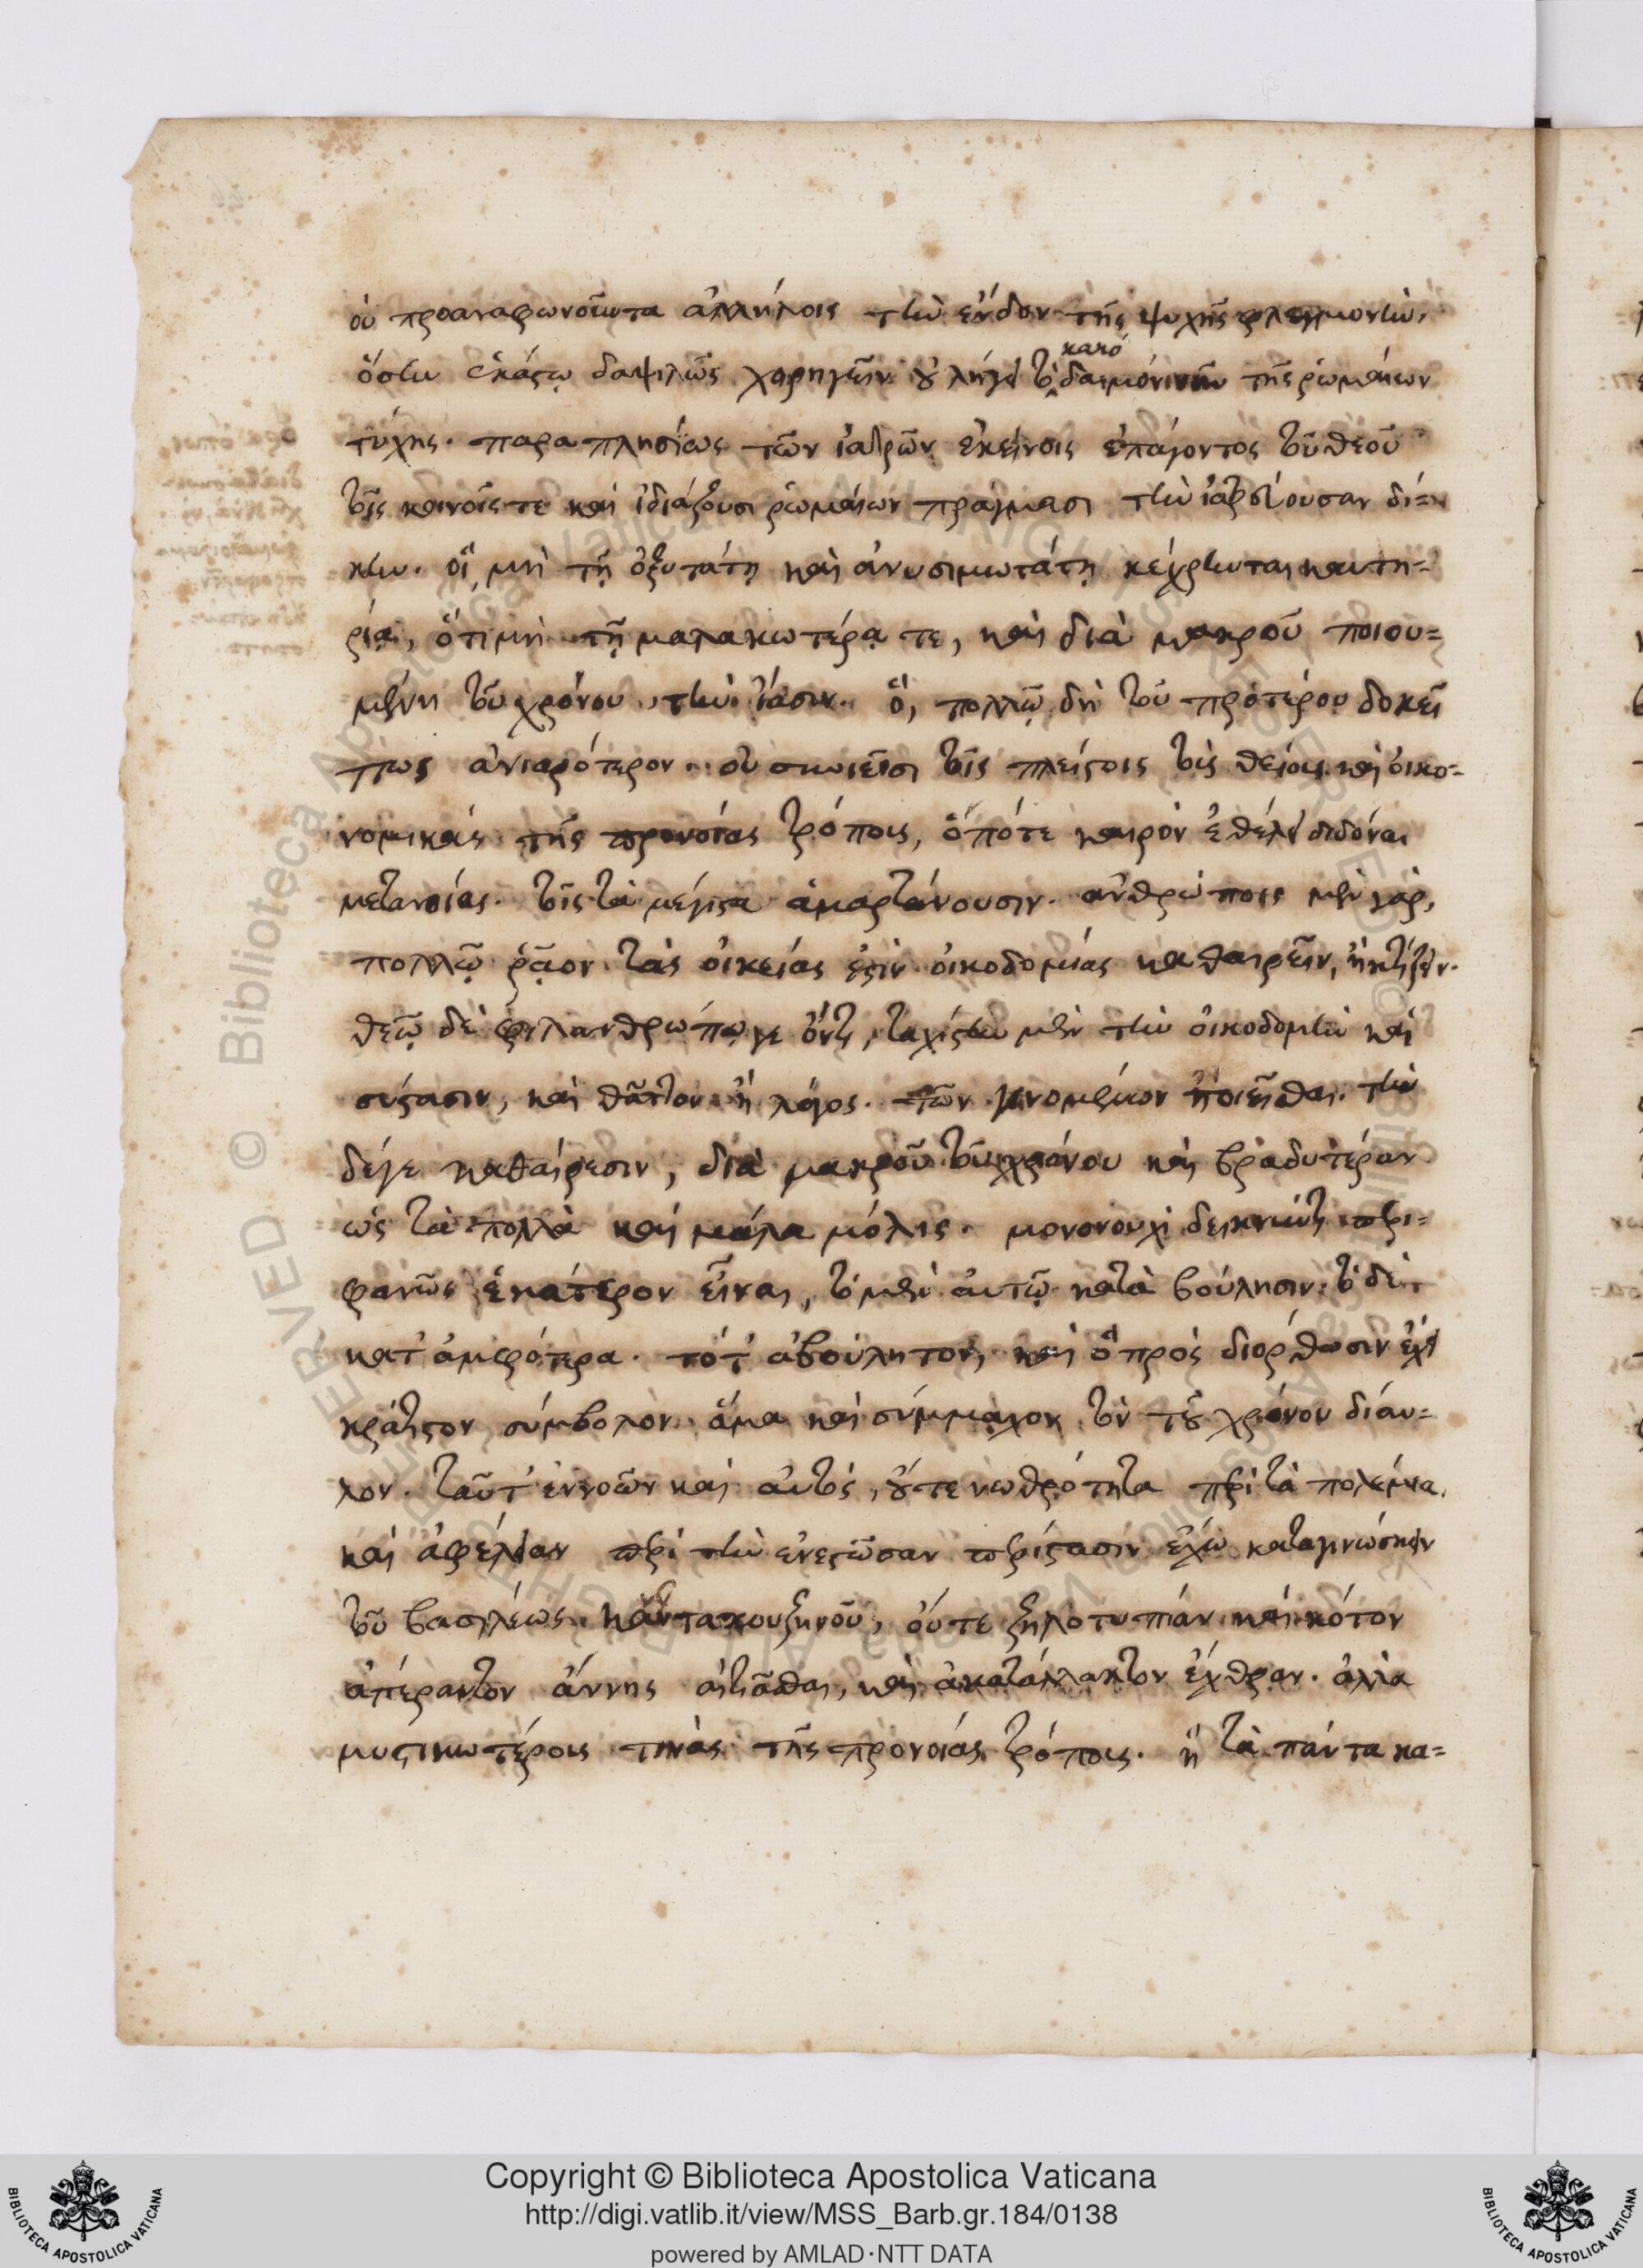 οὐ προαναφωνοῦντα ἀλλήλοις τὴν ἔνδον τῆς ψυχῆς φλεγμονὴν,
ὅσην ἑκάστῳ δαψιλῶς χορηγεῖν οὐ λήγει τὸ κακό δαιμον τῆς ῥωμαίων
τύχης. παραπλησίως τῶν ἰατρῶν ἐκείνοις ἐπάγοντος τοῦ θεοῦ
τοῖς κοινοῖς τε καὶ ἰδιάζουσι ῥωμαίων πράγμασι τὴν ἰατρεύουσαν δί=
κην. οἳ μὴ τῇ ὀξυτάτῃ καὶ ἀνυσιμωτάτῃ κέχρηνται καυτη=
ρίᾳ, ὅτι μὴ τῇ μαλακωτέρᾳ τε, καὶ διὰ μακροῦ ποιου=
μένῃ τοῦ χρόνου, τὴν ἴασιν. ὃ, πολλῷ δὴ τοῦ προτέρου δοκεῖ
πως ἀνιαρότερον. οὐ συνιεῖσι τοῖς πλείστοις τοὺς θείους καὶ οἰκο=
νομικοὺς τῆς προνοίας τρόπους, ὁπότε καιρὸν ἐθέλει διδόναι
μετανοίας. τοῖς τὰ μέγιστα ἁμαρτάνουσιν. ἀνθρώποις μὲν γὰρ,
πολλῷ ῥᾷον τὰς οἰκείας ἐστὶν οἰκοδομίας καθαιρεῖν, ἢ κτίζειν.
θεῷ δὲ φιλανθρώπῳ γε ὄντι, ταχίστην μὲν τὴν οἰκοδομὴν καὶ
σύστασιν, καὶ θᾶττον ἢ λόγος. τῶν γινομένων ποιεῖσθαι. τὴν
δέ γε καθαίρεσιν, διὰ μακροῦ τοῦ χρόνου καὶ βραδυτέραν
ὡς τὰ πολλὰ καὶ μάλα μόλις. μονονουχὶ δεικνύντι περι=
φανῶς ἑκάτερον εἶναι, τὸ μὲν αὐτῷ κατὰ βούλησιν. τὸ δὲ
κατ' ἀμφότερα. τό τ' ἀβούλητον, καὶ ὃ πρὸς διόρθωσιν ἔχει
κράτιστον σύμβολον ἅμα καὶ σύμμαχον τὸν τοῦ χρόνου δίαυ=
λον. ταῦτ' ἐννοῶν καὶ αὐτὸς, οὔτε νωθρότητα περὶ τὰ πολέμια
καὶ ἀφέλειαν περὶ τὴν ἐνεστῶσαν περίστασιν ἔχω καταγινώσκειν
τοῦ βασιλέως Καντακουζηνοῦ, οὔτε ζηλοτυπίαν καὶ κότον
ἀπέραντον ἄννης αἰτιᾶσθαι, καὶ ἀκατάλλακτον ἔχθραν. ἀλλὰ
μυστικωτέρους τινὰς τῆς προνοίας τρόπους. ᾗ τὰ πάντα κα=
Copyright © Biblioteca Apostolica Vaticana
http://digi.vatlib.it/view/MSS_Barb.gr.184/0138
powered by AMLAD·NTT DATA